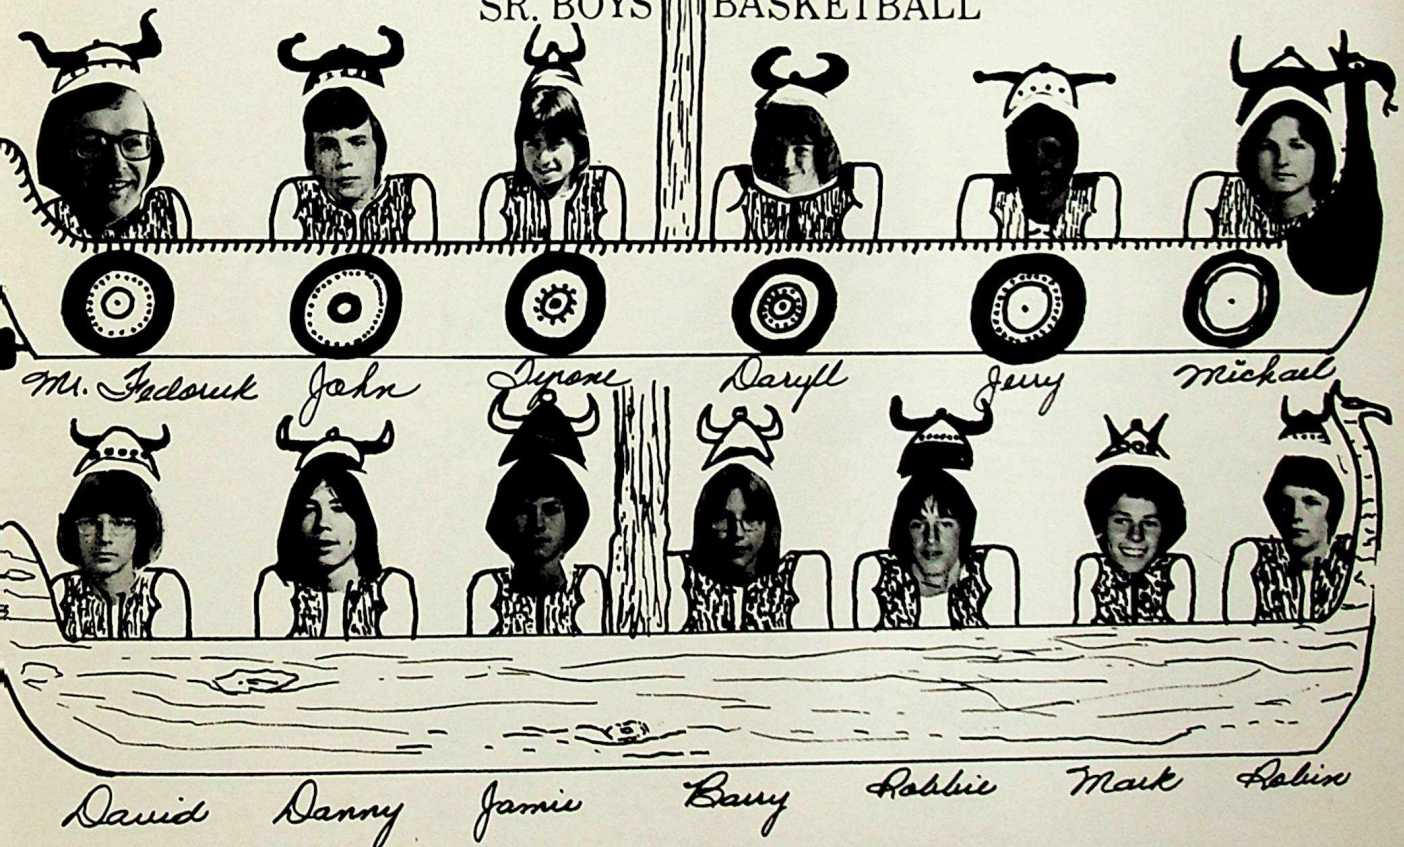 SR. BOYS BASKETBALL
Mr. Fedoruk John Tyrone Daryll Jerry Michael
David Danny Jamie Barry Robbie Mark Robin